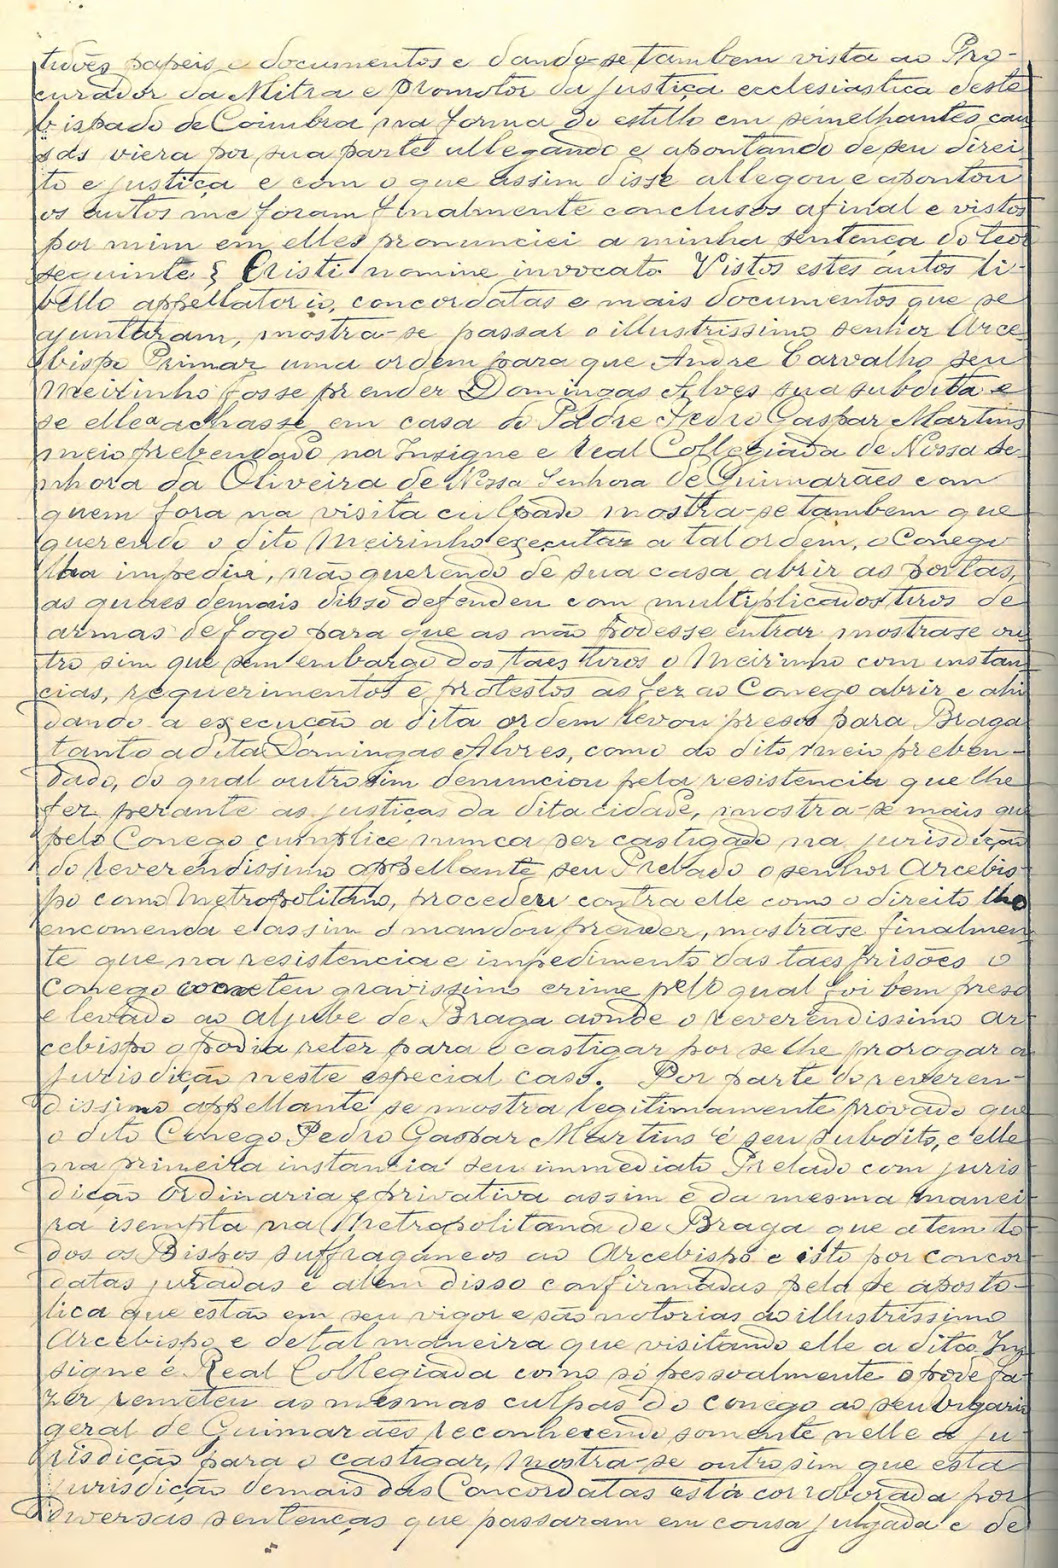 tudões papeis e documentos e dando-se tambem vista ao Pro-
curador da Mitra e Promotor da justiça ecclesiastica deste
bispado de Coimbra na forma do estillo em semelhantes cau
sas viera por sua parte allegando e apontando de seu direi
to e justiça e com o que assim disse allegou e apontou
os autos me foram finalmente conclusos afinal e vistos
por mim em elles pronunciei a minha sentença do teor
seguinte § Cristi nomine invocato Vistos estes autos li-
bello appellatorio, concordatas e mais documentos que se
ajuntaram, mostra-se passar o illustrissimo senhor Arce
bispo Primaz uma ordem para que Andre Carvalho seu
Meirinho fosse prender Domingas Alves sua subdita e
se elle a achasse em casa do Padre Pedro Gaspar Martins
meio prebendado na Insigne e Real Collegiada de Nossa Se
nhora da Oliveira de Nossa Senhora de Guimarães com
quem fora na visita culpado mostra-se tambem que
querendo o dito Meirinho executar a tal ordem, o Conego
lha impedir, não querendo de sua casa abrir as portas,
as quaes demais disso defendeu com multiplicados tiros de
armas de fogo para que as não podesse entrar mostrase ou
tro sim que sem embargo dos taes tiros o Meirinho com instan
cias, requerimentos e protestos as fez ao Conego abrir e ahi
dando a execução a dita ordem levou presos para Braga
tanto a dita Domingas Alvres, como ao dito meio preben-
dado, do qual outro sim denunciou pela resistencia que lhe
fez perante as justiças da dita cidade, mostra-se mais que
pelo Conego cumplice nunca ser castigado na jurisdição
do reverendissimo appellante seu Prelado o senhor Arcebis-
po como Metropolitano, procedeu contra elle como o direito lho
encomenda e assim o mandou prender, mostrase finalmen
te que na resistencia e impedimento das taes prisões o
Conego cometeu gravissimo crime pelo qual foi bem preso
e levado ao aljube de Braga aonde o reverendissimo ar
cebispo o podia reter para o castigar por se lhe prorogar a
jurisdição neste especial caso. Por parte do reveren-
dissimo appellante se mostra legitimamente provado que
o dito Conego Pedro Gaspar Martins é seu subdito, e elle
na primeira instancia seu immediato Prelado com juris
dição ordinaria e privativa assim e da mesma manei
ra isempta na Metropolitana de Braga que a tem to
dos os Bispos suffraganeos ao Arcebispo e isto por concor
datas juradas e alem disso confirmadas pela se aposto-
lica que estão em seu vigor e são notorias ao illustrissimo
Arcebispo e de tal maneira que visitando elle a dita In
signe e Real Collegiada como só pessoalmente o pode fa
zer remeteu as mesmas culpas do conego ao seu vigario
geral de Guimarães reconhecendo somente nelle a ju-
risdição para o castigar, mostra-se outrosim que esta
jurisdição demais das Concordatas está corroborada por
diversas sentenças que passaram em cousa julgada e de